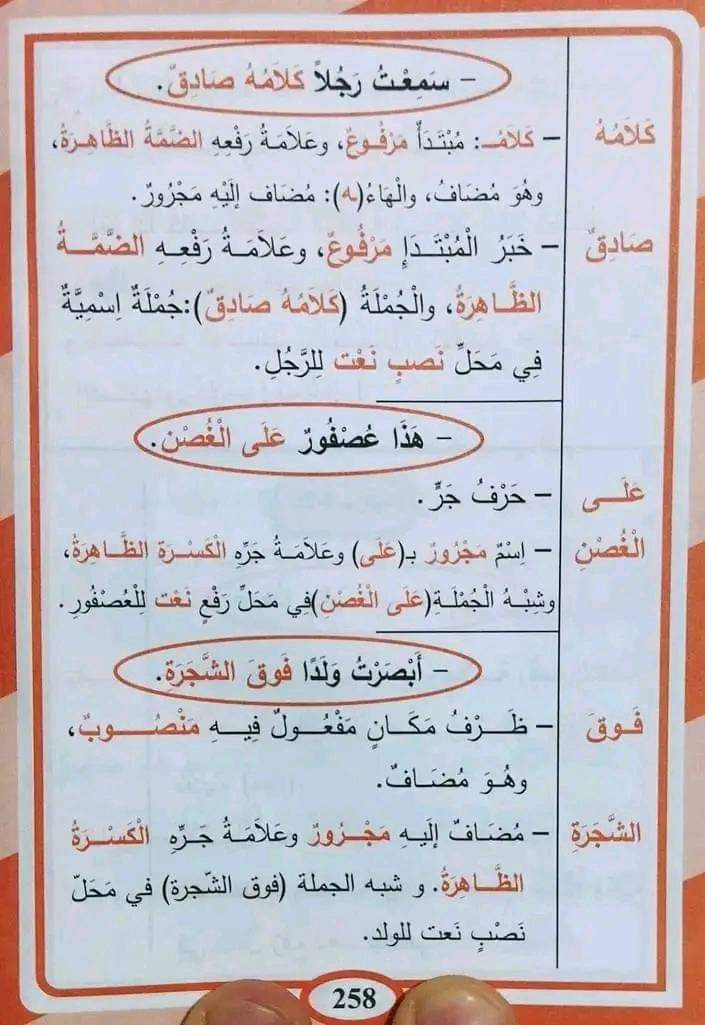 – سَمِعْتُ رَجُلاً كَلَامُهُ صَادِقٌ.
كَلَامُهُ – كَلَامُـ: مُبْتَدَأٌ مَرْفُوعٌ، وعَلَامَةُ رَفْعِهِ الضَّمَّةُ الظَّاهِرَةُ،
وهُوَ مُضَافُ، والْهَاءُ(ـه): مُضَاف إلَيْهِ مَجْرُورٌ.
صَادِقٌ – خَبَرُ الْمُبْتَدَإِ مَرْفُوعٌ، وعَلَامَةُ رَفْعِهِ الضَّمَّةُ
الظَّاهِرَةُ، والْجُمْلَةُ (كَلَامُهُ صَادِقٌ):جُمْلَةٌ اِسْمِيَّةٌ
فِي مَحَلِّ نَصبٍ نَعْت لِلرَّجُلِ.
– هَذَا عُصْفُورٌ عَلَى الْغُصْنِ.
عَلَـى – حَرْفُ جَرٍّ.
الْغُصْنِ – اِسْمٌ مَجْرُورٌ بـ(عَلَى) وعَلَامَةُ جَرِّهِ الْكَسْرَة الظَّاهِرَةُ،
وشِبْهُ الْجُمْلَةِ(عَلَى الْغُصْنِ)فِي مَحَلِّ رَفْعٍ نَعْت لِلْعُصْفُورِ.
– أَبْصَرْتُ وَلَدًا فَوقَ الشَّجَرَةِ.
فَـوقَ – ظَـرْفُ مَكَـانٍ مَفْعُـولٌ فِيـهِ مَنْصُـوبٌ،
وهُـوَ مُضَـافٌ.
الشَّجَرَةِ – مُضَـافٌ إلَيْـهِ مَجْـرُورٌ وعَلَامَـةُ جَـرِّهِ الْكَسْـرَةُ
الظَّـاهِرَةُ. و شبه الجملة (فوق الشّجرة) في مَحَلّ
نَصْبٍ نَعت للولد.
258